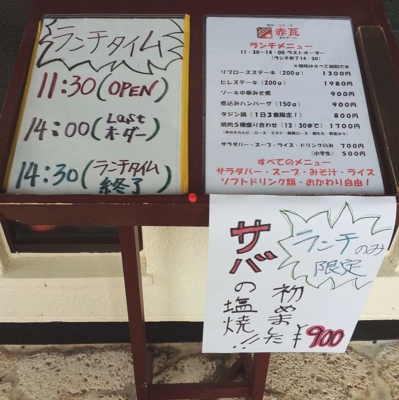 ランチタイム
11:30(OPEN)
14:00(Lastオーダー)
14:30(ランチタイム終了)
赤瓦
ランチメニュー
11:30~14:00ラストオーダー
(ランチ終了14:30)
リブロースステーキ(200g) 1300円
ヒレステーキ(200g) 1980円
ソーキ中華みそ煮 900円
煮込みハンバーグ(150g) 900円
タジン鍋(1日3食限定!) 800円
焼肉5種盛り合わせ(13:30まで) 1700円
サラダバー・スープ・ライス・ドリンクのみ 700円
(小学生) 500円
すべてのメニュー
サラダバー・スープ・みそ汁・ライス
ソフトドリンク類・おかわり自由!
ランチのみ
限定
サバの塩焼
初めました!!
¥900